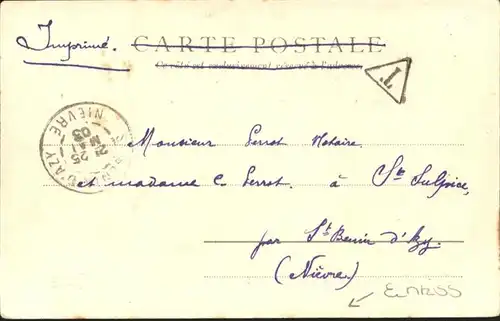 Imprimé. CARTE POSTALE
Ce côté est exclusivement réservé à l'adresse.
T
NIÈVRE
25
MAI
03
D'AZY
Monsieur Perrot Notaire.
et madame C. Perrot. à Ste Sulpice,
par St Benin d'Azy.
(Nièvre.)